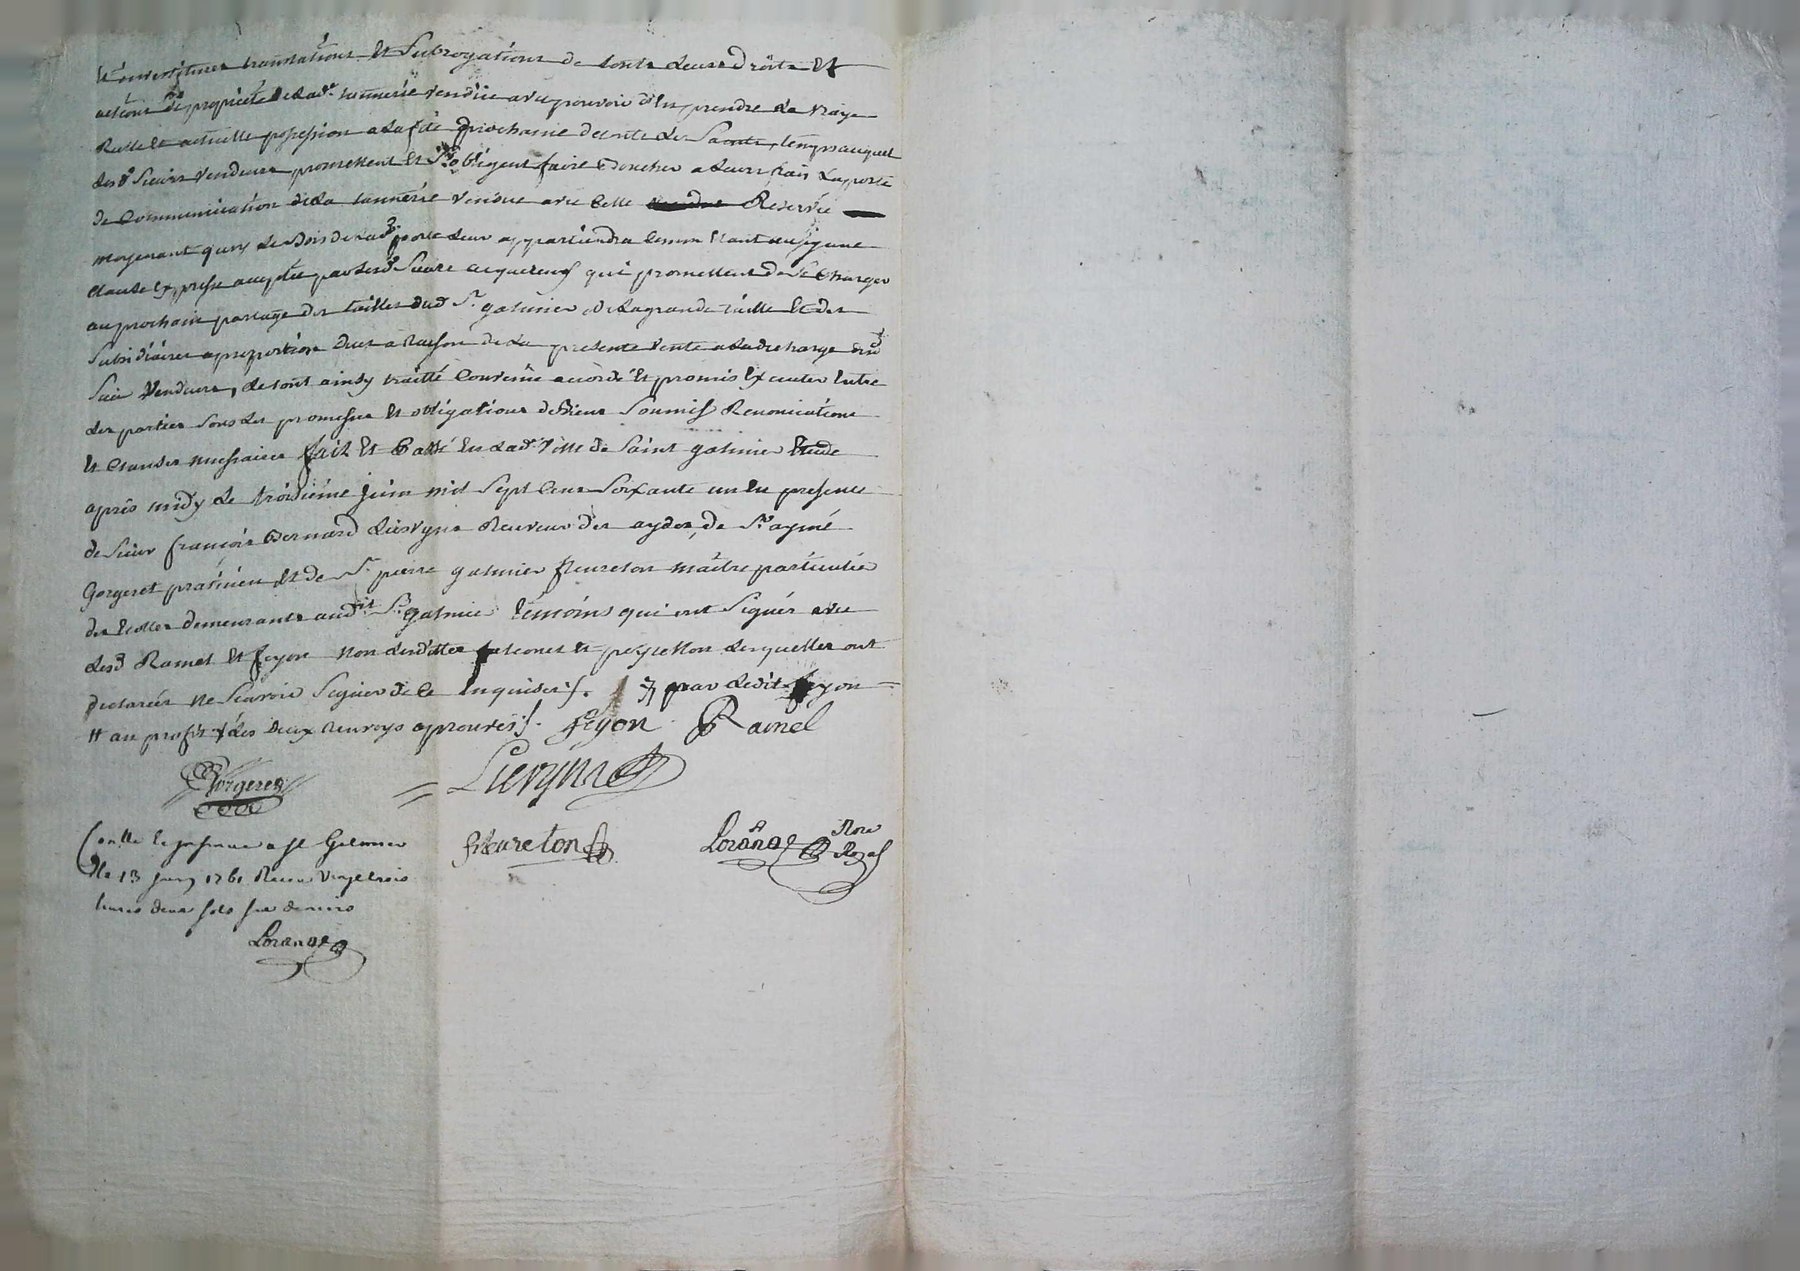 et investitures translations et subrogations de touts leurs droits et
actions de propriété de lad.e tannerie vendüe avec pouvoir d'en prendre la vraye
Reelle et actuelle possession a la fête prochaine de toute les Saints, temps auquel
lesd. Sieurs vendeurs promettent et s'obligent faire boucher a leurs frais la porte
de Communication de la tannerie vendüe avec Celle Réservée
moyenant quoy le Bois de lad. porte leur appartiendra Comm' étant aussy une
clause expresse acceptée par lesd. Sieurs acquereurs qui promettent de se Charger
au prochain partage des tailles dud. St. galmier de la grande taille et des
Subsidiaires a proportion due a Raison de la presente vente a la decharge desd.
Sieurs Vendeurs, le tout ainsy traitté Convenu accordé et promis Executer Entre
les parties sous les promesses et obligations de Biens Soumiss. Renonciations
et Clauses necessaires fait et Passé en lad. ville de Saint galmier Etude
après midy le troisième juin mil Sept Cens Soixante un en presence
de Sieur françois Bernard Lievyns Receveur des aydes, de Sr. aymé
Gorgeret praticien et de Sr. pierre galmier fleureton maître particulier
des Ecoles demeurants audit St. galmier témoins qui ont Signés avec
lesd. Ramel et feyon non lesdittes et lesquelles ont
declarées ne Sçavoir Signer de ce Enquises ./. par ledit feyon
# au profit des deux Renvoys aprouvés ./. feyon Ramel
Gorgeret
Lievyns
fleureton
Lorange Nore Royal
Con.lle et insinué a St Galmier
Le 13 juin 1761 Receu Vingt trois
livres deux sols six deniers
Lorange